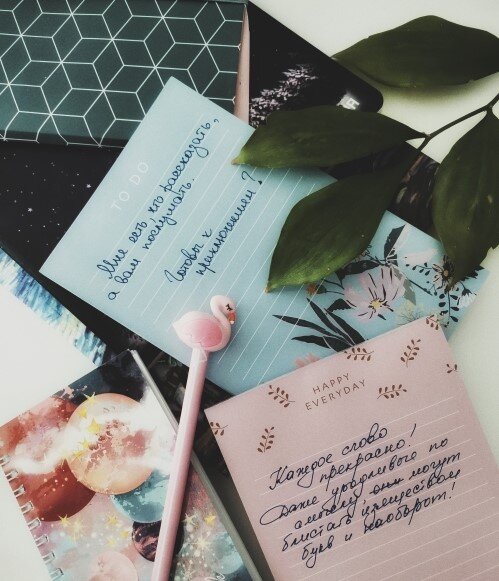 TO DO
Мне есть, что рассказать,
а вам послушать.
Готовы к
приключениям?
HAPPY
EVERYDAY
Каждое слово
прекрасно!
Даже уродливые по
смыслу они могут
блистать изяществом
букв и наоборот!